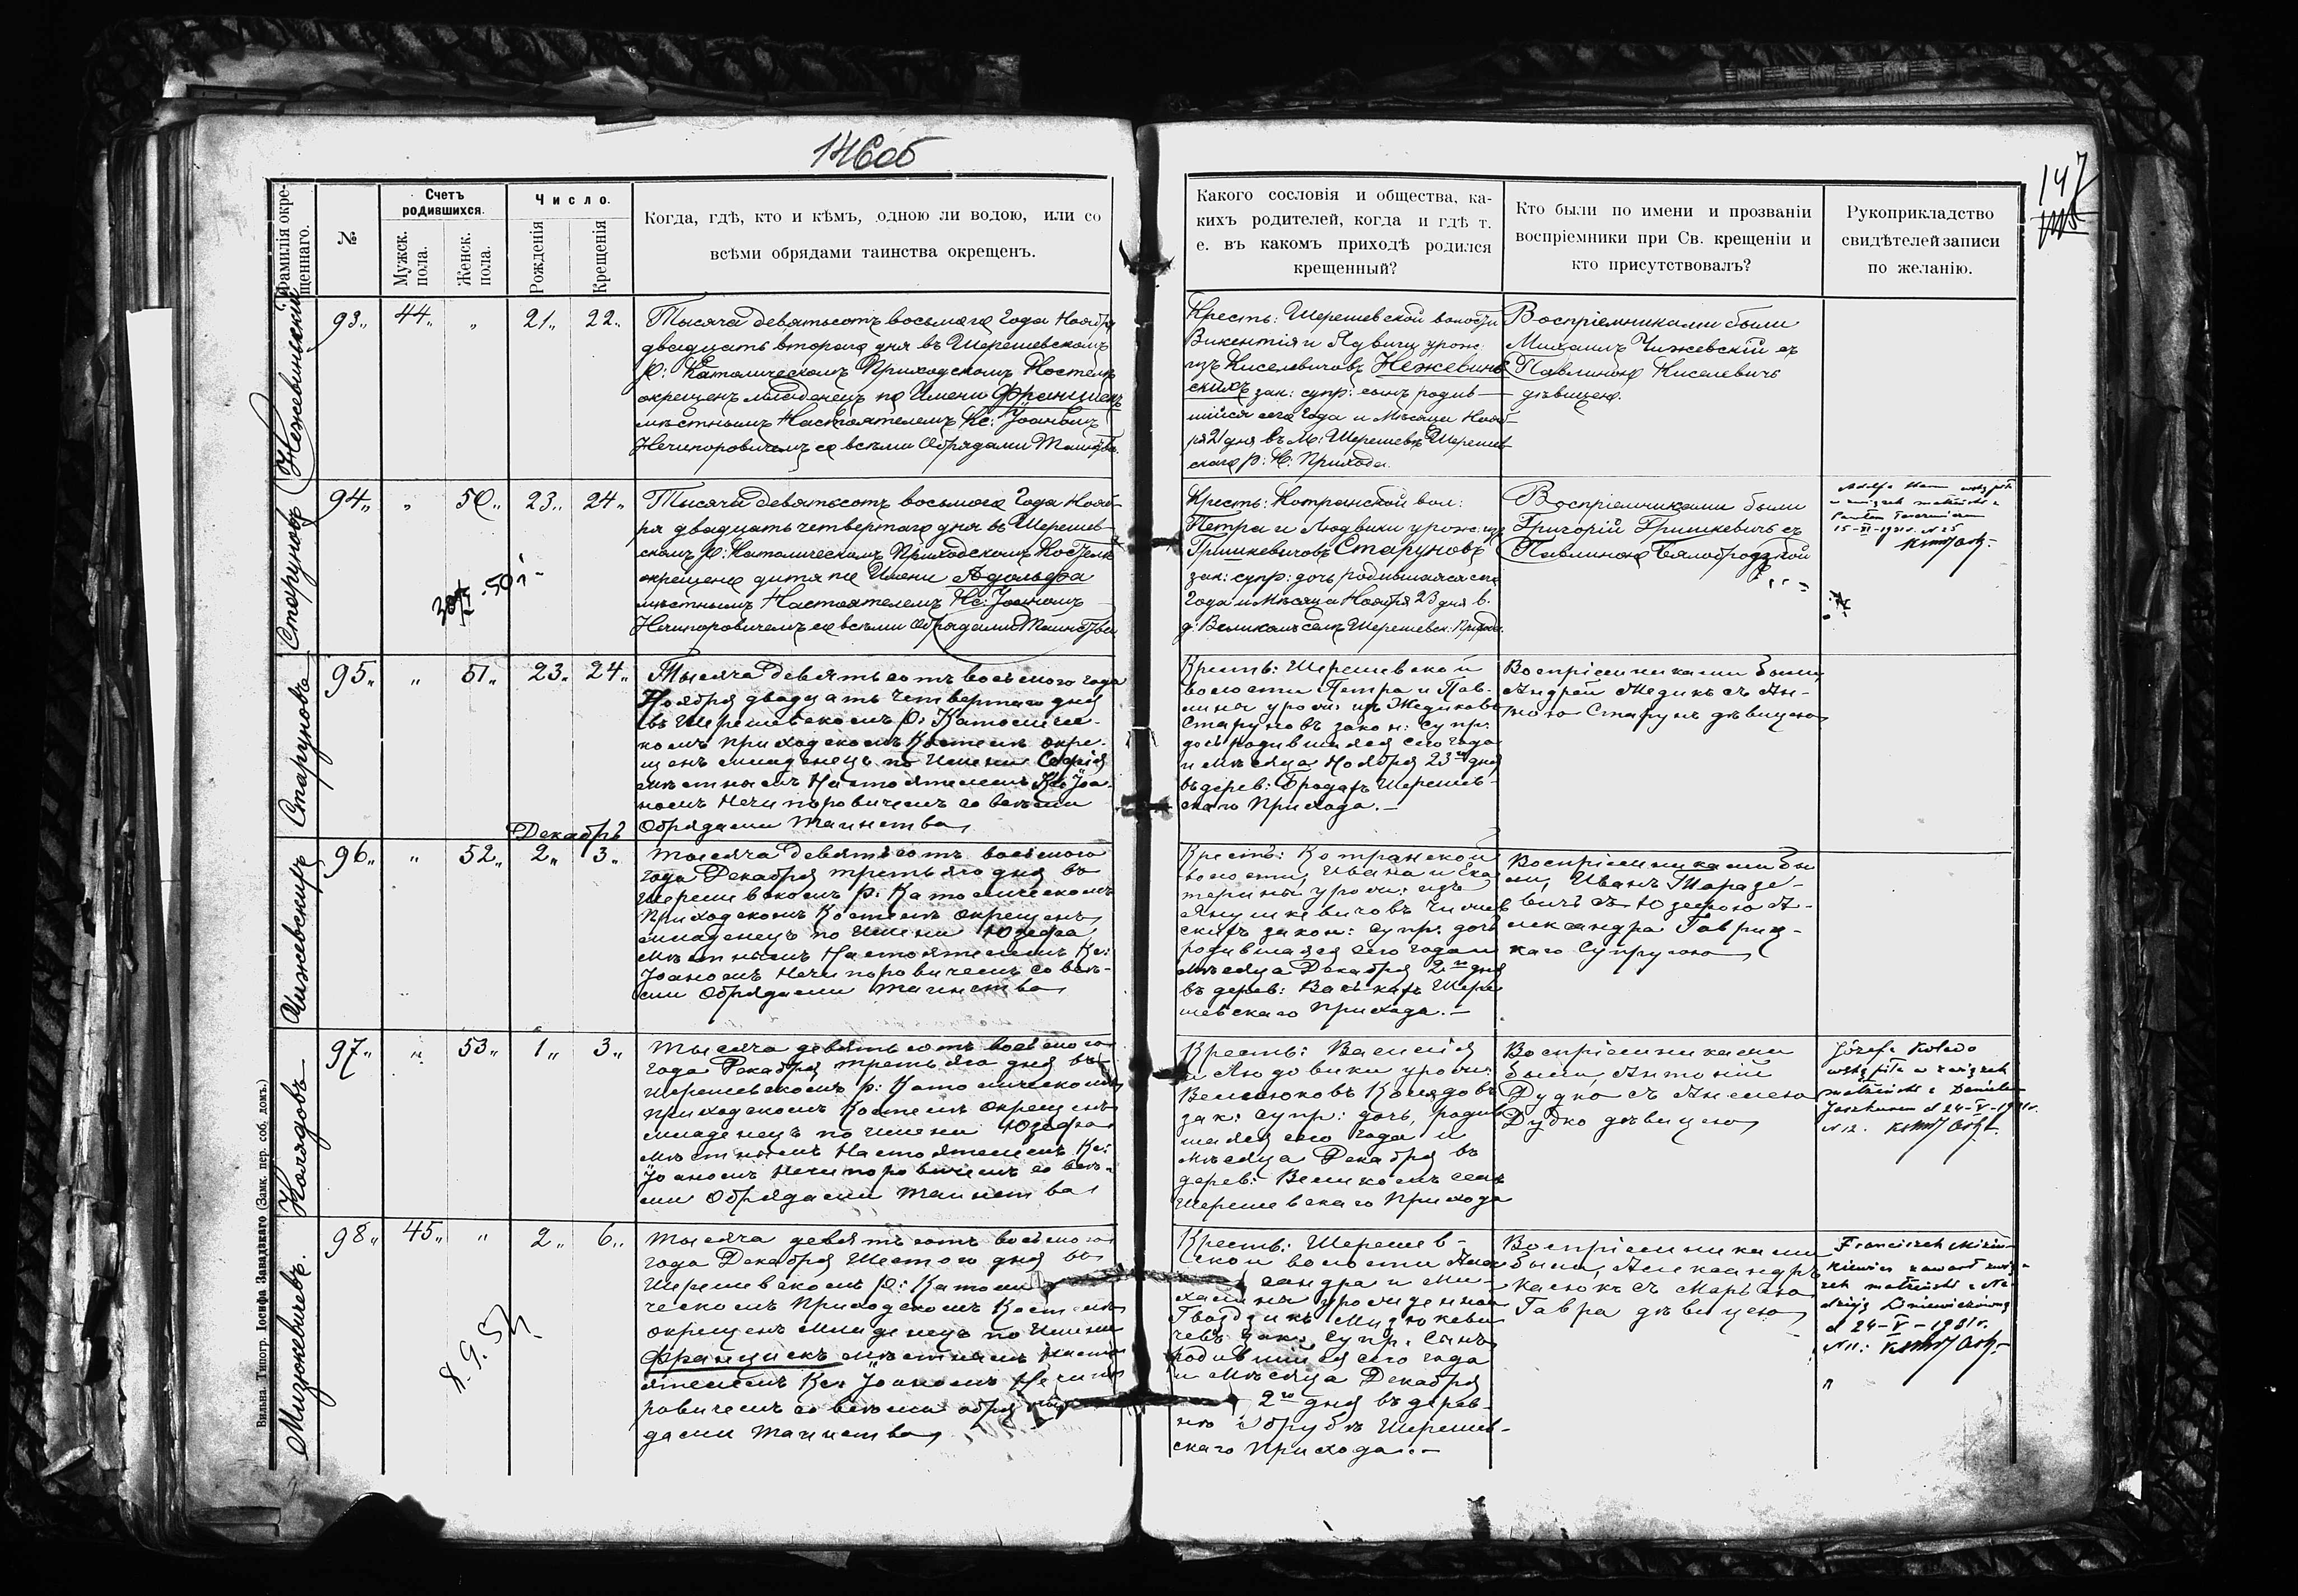 146об
147
Фамилія окрещеннаго.
№
Счетъ родившихся.
Мужск. пола.
Женск. пола.
Число.
Рожденія
Крещенія
Когда, гдѣ, кто и кѣмъ, одною ли водою, или со
всѣми обрядами таинства окрещенъ.
Какого сословія и общества, ка-
кихъ родителей, когда и гдѣ т.
е. въ какомъ приходѣ родился
крещенный?
Кто были по имени и прозваніи
воспріемники при Св. крещеніи и
кто присутствовалъ?
Рукоприкладство
свидѣтелей записи
по желанію.
Нежевинскій
93 „ 44 „ „ 21 „ 22 „
Тысяча девятьсотъ восьмаго Года Ноября
двадцать втораго дня въ Шерешевскомъ
р: Католическомъ Приходскомъ Костелѣ
окрещенъ младенецъ по Имени Францишекъ
мѣстнымъ Настоятелемъ Кс: Іоаномъ
Нечипоровичемъ со всѣми Обрядами Таинства.
Кресть: Шерешевской волости
Викентія и Ядвиги урож:
изъ Киселевичовъ Нежевин-
скихъ зак: супр: сынъ родив-
шійся сего Года и Мѣсяца Нояб-
ря 21 дня въ М: Шерешевѣ Шерешев-
скаго р: К: Прихода.
Воспріемниками были
Михаилъ Чижевскій съ
Павлиною Киселевичъ
дѣвицею.
Старуновъ
94 „ „ 50 „ 23 „ 24 „
Тысяча девятьсотъ восьмаго Года Нояб-
ря двадцать четвертаго дня въ Шерешев-
скомъ р: Католическомъ Приходскомъ Костелѣ
окрещено дитя по Имени Адольфа
мѣстнымъ Настоятелемъ Кс: Іоаномъ
Нечипоровичемъ со всѣми Обрядами Таинства
Кресть: Котранской вол:
Петра и Людвики урожд: изъ
Гришкевичовъ Старуновъ
зак: супр: дочь родившаяся сего
Года и Мѣсяца Ноября 23 дня в.
д: Великомъ селѣ Шерешевск: Прихода.
Воспріемниками были
Григорій Гришкевичъ съ
Павлиною Бялобродзкой
15-XI-1931 r. N 25
Старуновъ
95 „ „ 51 „ 23 „ 24 „
Тысяча девятьсотъ восьмого года
Ноября двадцать четвертаго дня
въ Шерешевскомъ р: Католичес-
комъ приходскомъ Костелѣ окре-
щенъ младенецъ по Имени Софія
мѣстнымъ Настоятелемъ Кс: Іоа-
номъ Нечипоровичемъ со всѣми
Обрядами таинства
Кресть: Шерешевской
волости Петра и Пав-
лины урож: изъ Медиковъ
Старуновъ закон: супр.
дочь родившаяся сего года
и мѣсяца Ноября 23го дня
въ дерев: Бродахъ Шерешев-
скаго Прихода. —
Воспріемниками были
Андрей Медикъ съ Ан-
ною Старунъ дѣвицею
Декабрь
Чижевскихъ
96 „ „ 52 „ 2 „ 3 „
Тысяча девятьсотъ восьмого
года Декабря третьяго дня въ
Шерешевскомъ р: Католическомъ
Приходскомъ Костелѣ окрещенъ
младенецъ по Имени Юзефа
Мѣстнымъ Настоятелемъ Кс:
Іоаномъ Нечипоровичемъ со всѣ-
ми Обрядами таинства
Кресть: Котранской
волости, Ивана и Ека
терины урож: изъ
Янушкевичовъ Чижев
скихъ закон: супр: дочь
родившаяся сего года и
мѣсяца Декабря 2го дня
въ дерев: Вашкахъ Шере
шевскаго Прихода. —
Воспріемниками бы
ли, Иванъ Тараде-
вичъ съ Юзефою А-
лександра Гавриц-
каго Супругою
Колядовъ
97 „ „ 53 „ 1 „ 3 „
Тысяча девятьсотъ восьмого
года Декабря третьяго дня въ
Шерешевскомъ р: Католическомъ
приходскомъ Костелѣ окрещенъ
младенецъ по Имени Юзефа
Мѣстнымъ Настоятелемъ Кс:
Іоаномъ Нечипоровичемъ со всѣ-
ми Обрядами таинства
Кресть: Василія
и Людовики урож:
Велесюковъ Колядовъ
зак: супр: дочь, родив
шаяся сего года и
мѣсяца Декабря въ
дерев: Великомъ селѣ
Шерешевскаго Прихода
Воспріемниками
были, Антоній
Дудко съ Анелею
Дудко дѣвицею
Józefa Kolada
wstąpiła w związek
małżeński z Danielem
24-V-1931 r.
N 12.
Мизюкевичевъ.
98 „ 45 „ „ 2 „ 6 „
Тысяча девятьсотъ восьмого
года Декабря Шестого дня въ
Шерешевскомъ р: Католи
ческомъ Приходскомъ Костелѣ
окрещенъ младенецъ по Имени
Францискъ мѣстнымъ Насто
ятелемъ Кс: Іоаномъ Нечипо
ровичемъ со всѣми обря
дами таинства,
Кресть: Шерешев-
ской волости Алек
сандра и Ми-
халины урожденной
Гвоздзикъ Мизюкеви
чевъ Зак: супр. Сынъ
родившійся сего года
и Мѣсяца Декабря
2го дня въ дерев-
нѣ Обрубѣ Шерешев-
скаго Прихода. —
Воспріемниками
были, Александръ
Касюкъ съ Марьею
Гавра дѣвицею
Franciszek Miziu-
kiewicz zawarł zwią-
zek małżeński z Na-
24-V-1931 r.
N 11:
Вильна. Типогр. Іосифа Завадзкаго (Замк. пер. соб. домъ.)